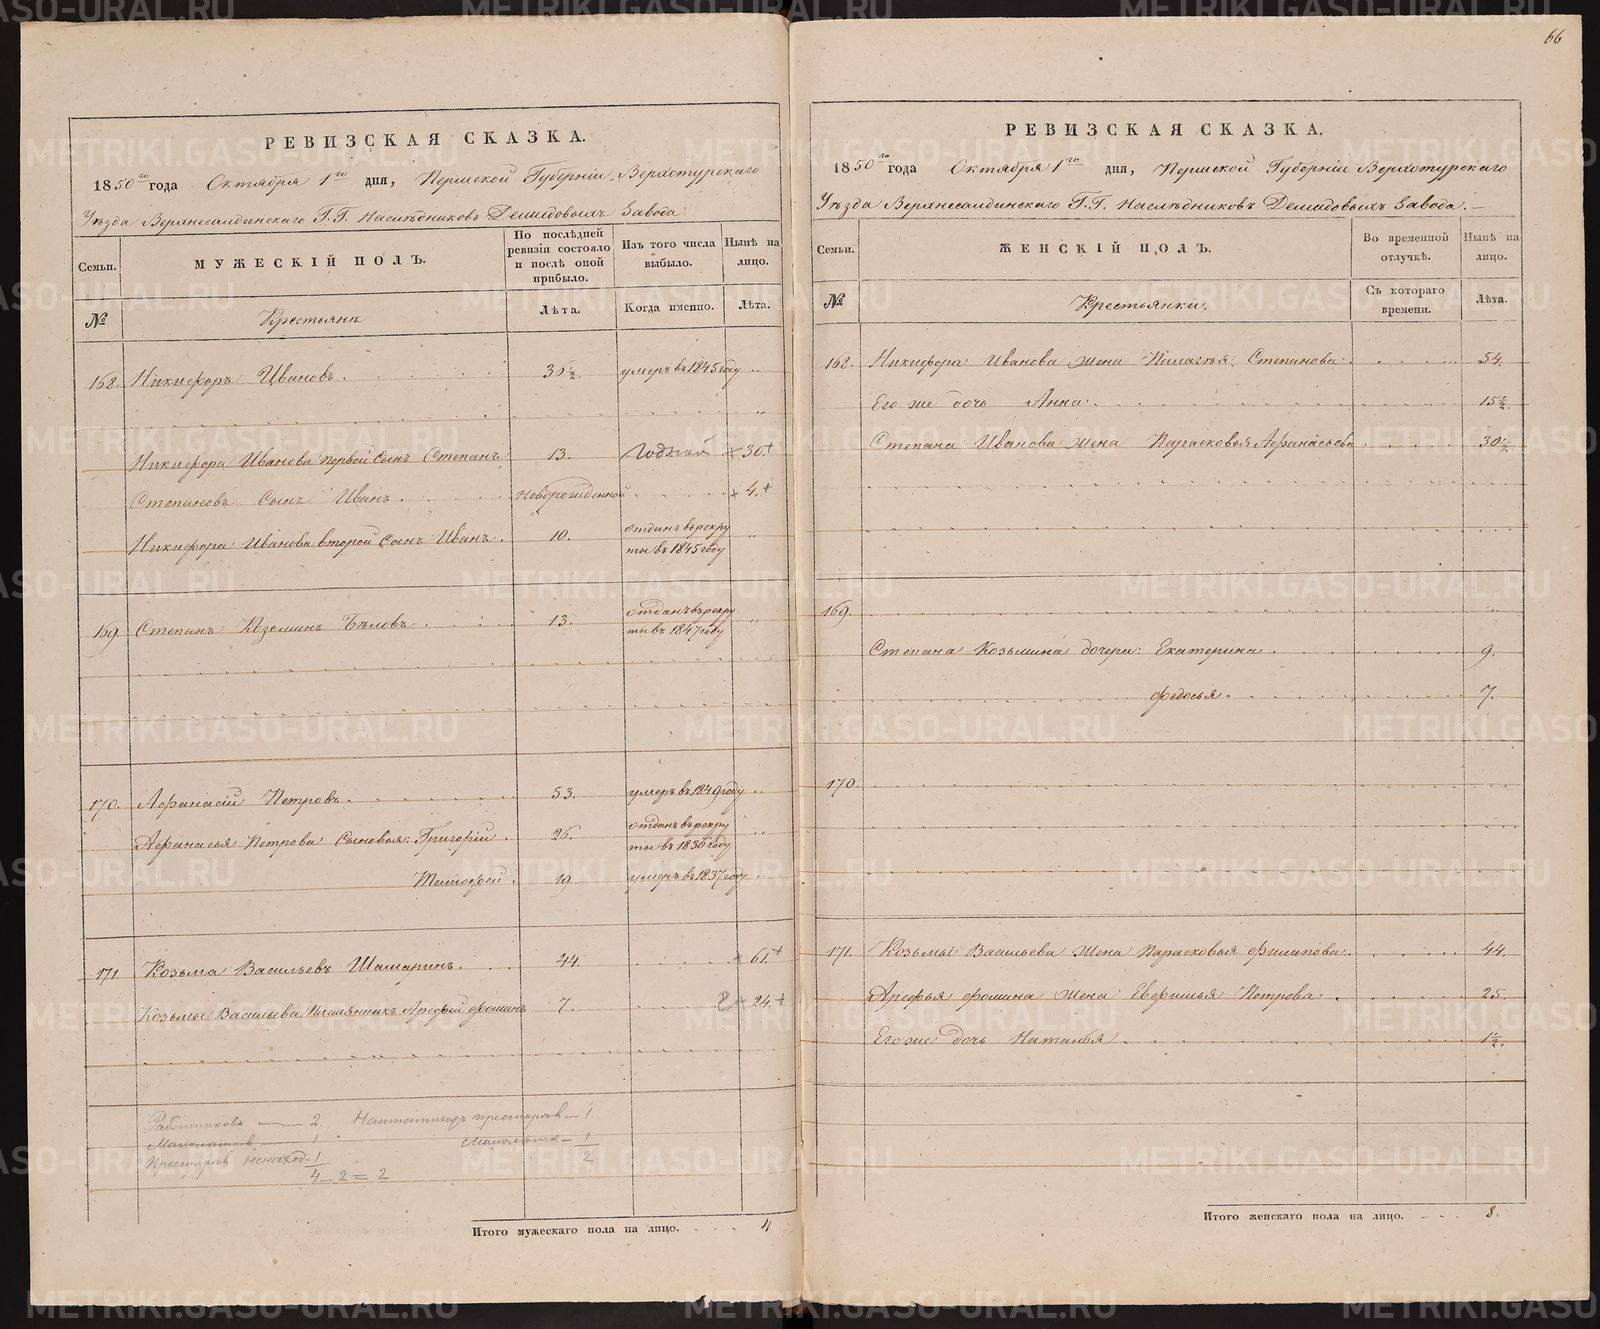 66
РЕВИЗСКАЯ СКАЗКА.
1850го года Октября 1го дня, Пермской Губерніи Верхотурскаго
Уѣзда Верхнесалдинскаго Г.Г. Наслѣдниковъ Демидовыхъ Завода.
Семьи. МУЖЕСКІЙ ПОЛЪ. По послѣдней ревизіи состояло и послѣ оной прибыло. Изъ того числа выбыло. Нынѣ на лицо.
№ Крестьянъ Лѣта. Когда именно. Лѣта.
168. Никифоръ Ивановъ. 30½. умеръ въ 1845 году "
Никифора Иванова первой сынъ Степанъ 13. Годной + 30. +
Степановъ сынъ Иванъ. новорожденной + 4. +
Никифора Иванова второй сынъ Иванъ. 10. отданъ въ рекру
ты въ 1845 году "
169. Степанъ Козьминъ Бѣловъ. 13. отданъ въ рекру
ты въ 1847 году "
170. Афанасій Петровъ. 53. умеръ въ 1849 году "
Афанасья Петрова сыновья: Григорій. 26. отданъ въ рекру
ты въ 1836 году "
Тимофей. 19. умеръ въ 1837 году "
171. Козьма Васильевъ Шамаринъ. 44. 61. +
Козьмы Васильева племянникъ Арефей Фоминъ 7. 24. +
Работниковъ — 2 престарѣв — 1
Малолѣтков — 1 Малолѣтк — 1
2
Престарѣв 1
4 — 2 = 2
Итого мужескаго пола на лицо. 4
РЕВИЗСКАЯ СКАЗКА.
1850го года Октября 1го дня, Пермской Губерніи Верхотурскаго
Уѣзда Верхнесалдинскаго Г.Г. Наслѣдниковъ Демидовыхъ Завода.
Семьи. ЖЕНСКІЙ ПОЛЪ. Во временной отлучкѣ. Нынѣ на лицо.
№ Крестьянки. Съ котораго времени. Лѣта.
168. Никифора Иванова жена Пелагѣя Степанова. 54.
Его же дочь Анна. 15½.
Степана Иванова жена Парасковья Афанасьева 30½.
169. "
Степана Козьмина дочери: Екатерина. 9.
Федосья. 7.
170.
171. Козьмы Васильева жена Парасковья Филипова. 44.
Арефья Фомина жена Евфимья Петрова. 25.
Его же дочь Наталья. 1½.
Итого женскаго пола на лицо. 8.
METRIKI.GASO-URAL.RU